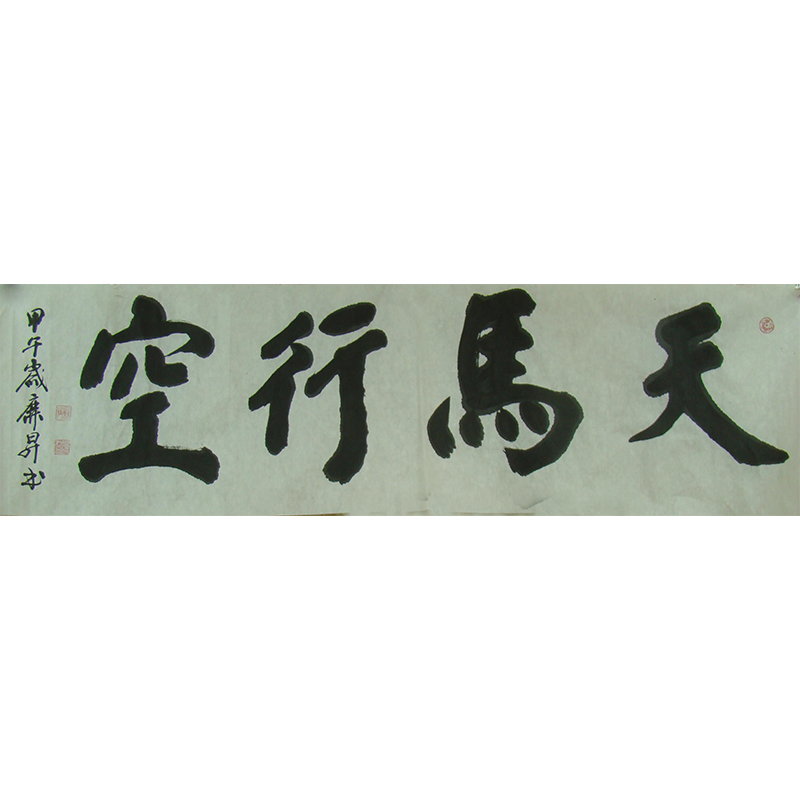 天馬行空
甲午歲廉昇书